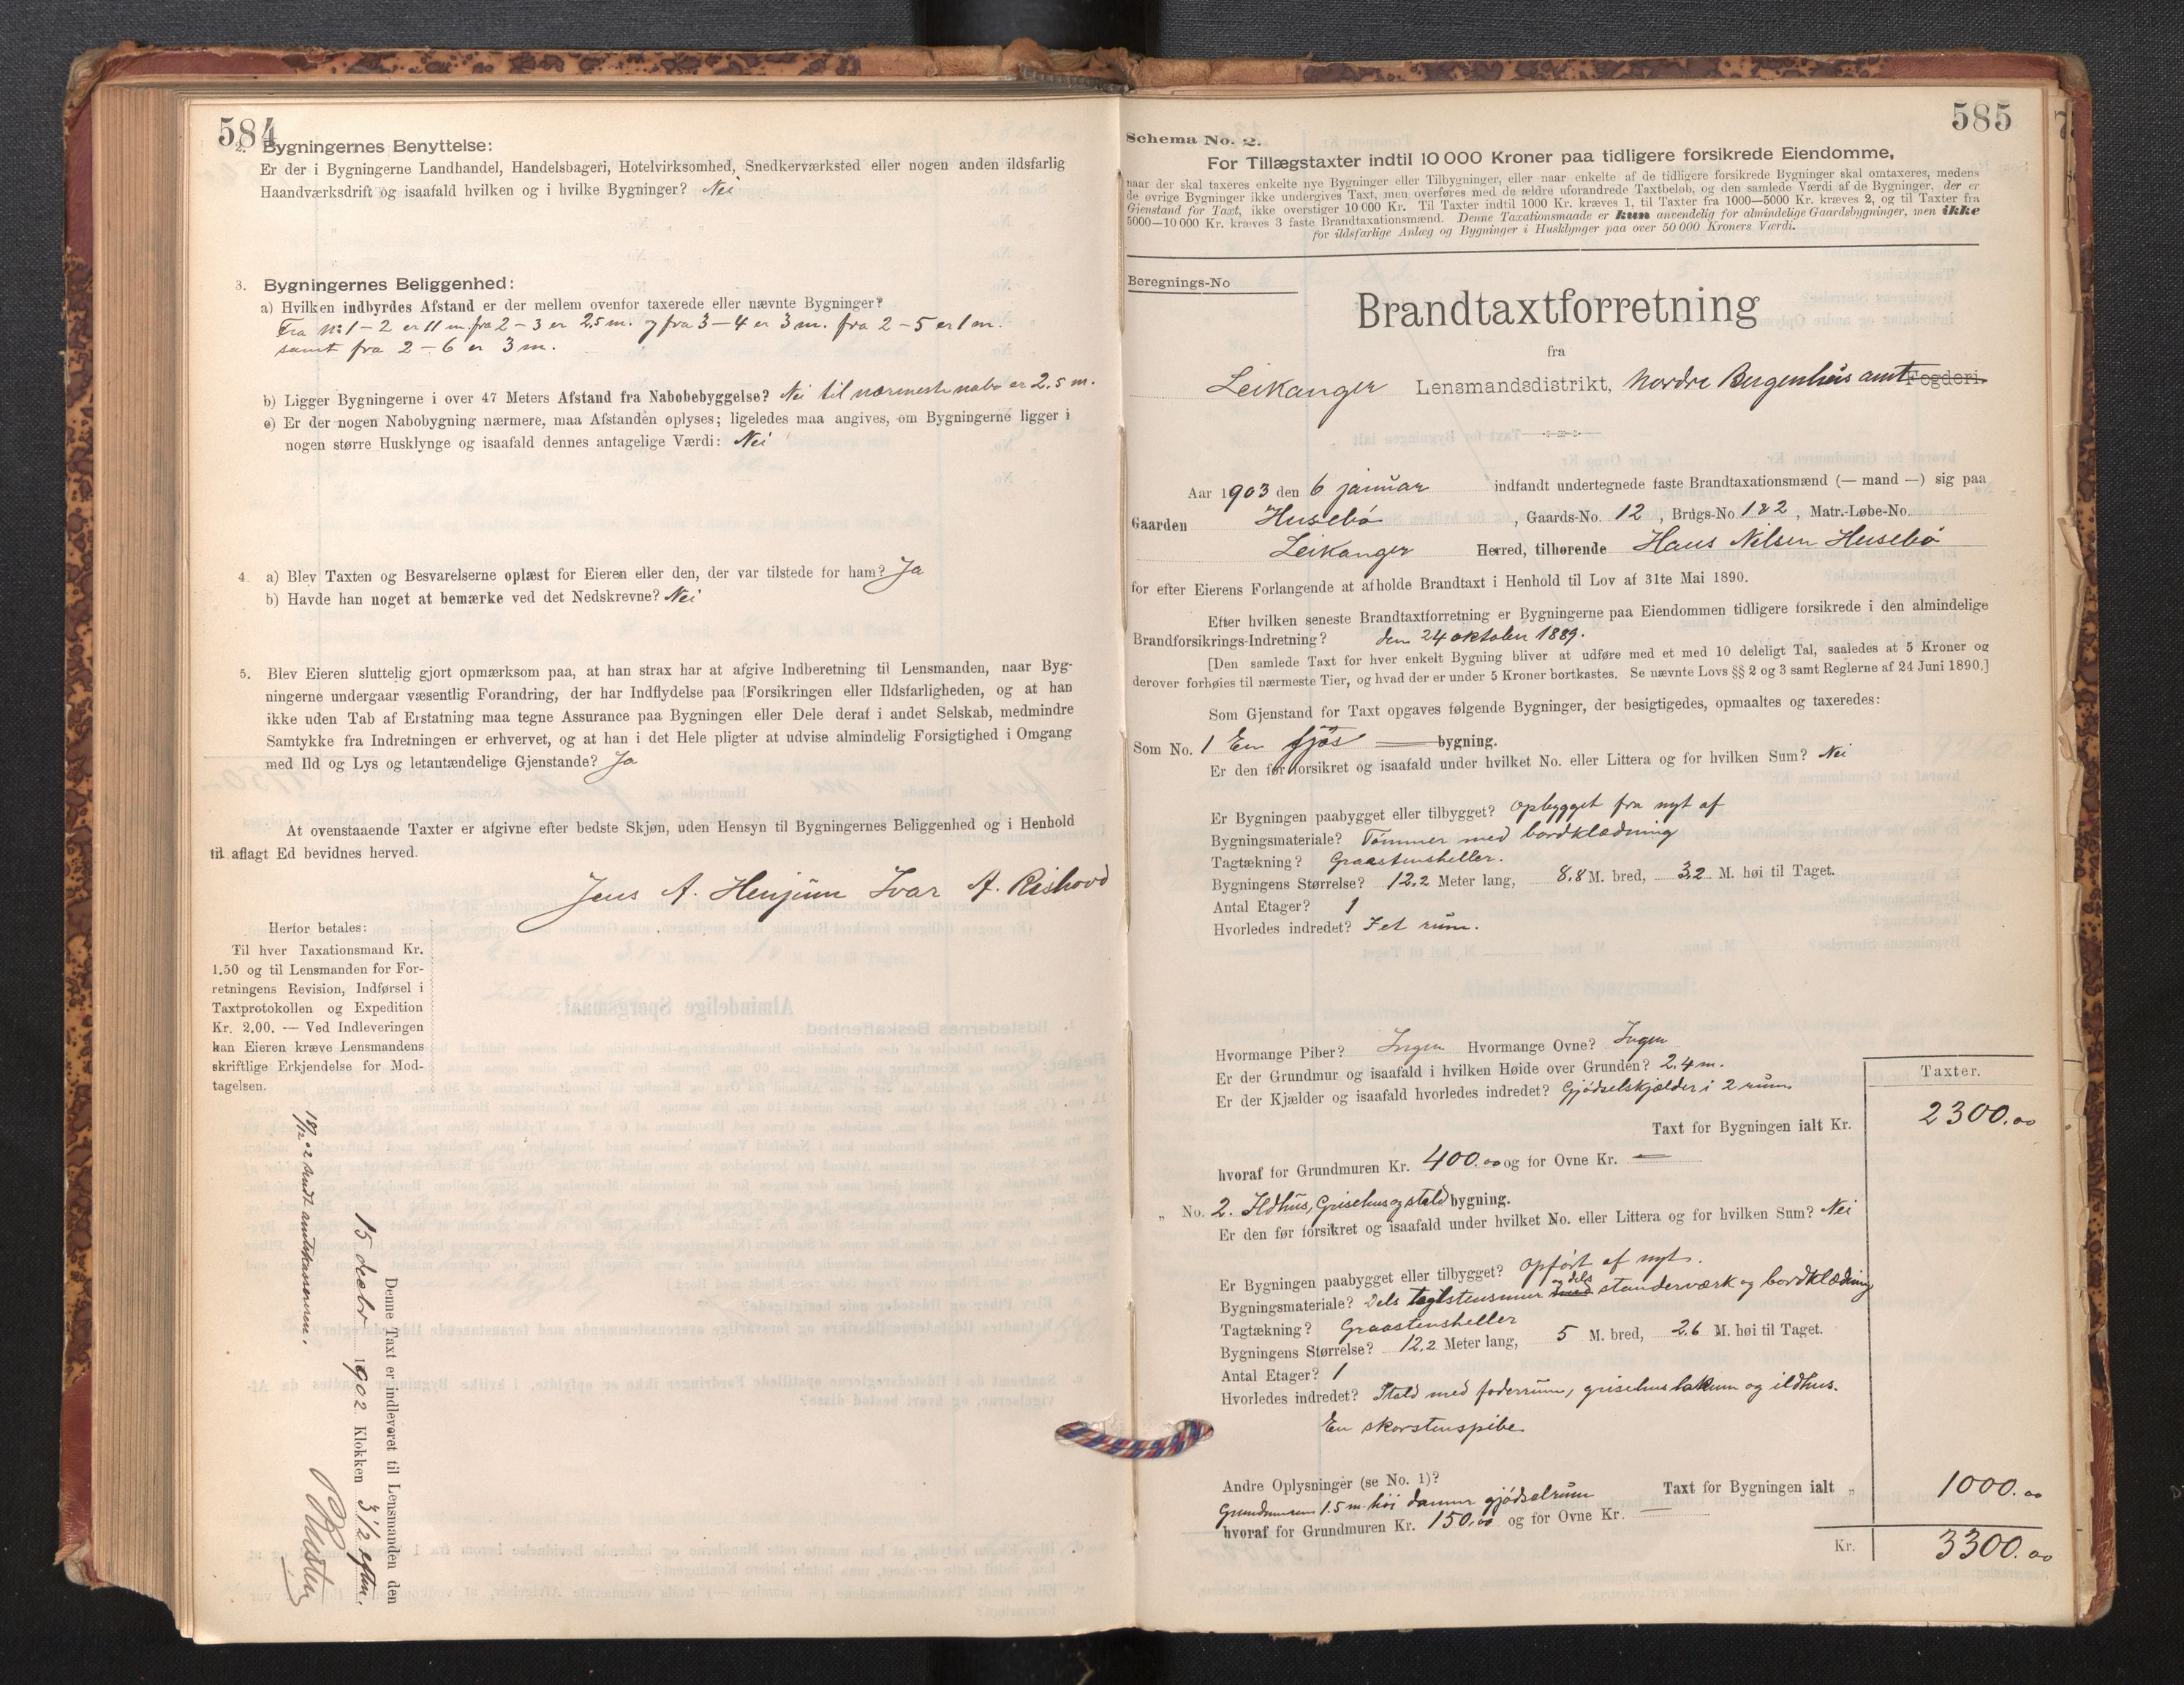 584
2. Bygningernes Benyttelse:
Er der i Bygningerne Landhandel, Handelsbageri, Hotelvirksomhed, Snedkerværksted eller nogen anden ildsfarlig
Haandværksdrift og isaafald hvilken og i hvilke Bygninger? Nei
3. Bygningernes Beliggenhed:
a) Hvilken indbyrdes Afstand er der mellem ovenfor taxerede eller nævnte Bygninger?
Fra No 1 - 2 er 11 m. fra 2 - 3 er 2,5 m. og fra 3 - 4 er 3 m. fra 2 - 5 er 1 m.
samt fra 2 - 6 er 3 m.
b) Ligger Bygningerne i over 47 Meters Afstand fra Nabobebyggelse? Nei til nærmeste nabo er 2.5 m.
c) Er der nogen Nabobygning nærmere, maa Afstanden oplyses; ligeledes maa angives, om Bygningerne ligger i
nogen større Husklynge og isaafald dennes antagelige Værdi: Nei
4. a) Blev Taxten og Besvarelserne oplæst for Eieren eller den, der var tilstede for ham? Ja
b) Havde han noget at bemærke ved det Nedskrevne? Nei
5. Blev Eieren sluttelig gjort opmærksom paa, at han strax har at afgive Indberetning til Lensmanden, naar Byg-
ningerne undergaar væsentlig Forandring, der har Indflydelse paa Forsikringen eller Ildsfarligheden, og at han
ikke uden Tab af Erstatning maa tegne Assurance paa Bygningen eller Dele deraf i andet Selskab, medmindre
Samtykke fra Indretningen er erhvervet, og at han i det Hele pligter at udvise almindelig Forsigtighed i Omgang
med Ild og Lys og letantændelige Gjenstande? Ja
At ovenstaaende Taxter er afgivne efter bedste Skjøn, uden Hensyn til Bygningernes Beliggenhed og i Henhold
til aflagt Ed bevidnes herved.
Jens A. Henjum Ivar A. Rishovd
Herfor betales:
Til hver Taxationsmand Kr.
1.50 og til Lensmanden for For-
retningens Revision, Indførsel i
Taxtprotokollen og Expedition
Kr. 2.00. — Ved Indleveringen
kan Eieren kræve Lensmandens
skriftlige Erkjendelse for Mod-
tagelsen.
Denne Taxt er indleveret til Lensmanden den
15 decbr 1902 Klokken 3 1/2 eftm.
18/12 02 sendt amtskassereren.
585
Schema No. 2.
For Tillægstaxter indtil 10 000 Kroner paa tidligere forsikrede Eiendomme,
naar der skal taxeres enkelte nye Bygninger eller Tilbygninger, eller naar enkelte af de tidligere forsikrede Bygninger skal omtaxeres, medens
de øvrige Bygninger ikke undergives Taxt, men overføres med de ældre uforandrede Taxtbeløb, og den samlede Værdi af de Bygninger, der er
Gjenstand for Taxt, ikke overstiger 10 000 Kr. Til Taxter indtil 1000 Kr. kræves 1, til Taxter fra 1000—5000 Kr. kræves 2, og til Taxter fra
5000—10 000 Kr. kræves 3 faste Brandtaxationsmænd. Denne Taxationsmaade er kun anvendelig for almindelige Gaardsbygninger, men ikke
for ildsfarlige Anlæg og Bygninger i Husklynger paa over 50 000 Kroners Værdi.
Beregnings-No
Brandtaxtforretning
fra
Leikanger Lensmandsdistrikt, Nordre Bergenhus amt Fogderi.
Aar 1903 den 6 januar indfandt undertegnede faste Brandtaxationsmænd (— mand —) sig paa
Gaarden Husebø, Gaards-No. 12, Brugs-No 1 & 2, Matr.-Løbe-No.
Leikanger Herred, tilhørende Hans Nilsen Husebø
for efter Eierens Forlangende at afholde Brandtaxt i Henhold til Lov af 31te Mai 1890.
Efter hvilken seneste Brandtaxtforretning er Bygningerne paa Eiendommen tidligere forsikrede i den almindelige
Brandforsikrings-Indretning? den 24 oktober 1889.
[Den samlede Taxt for hver enkelt Bygning bliver at udføre med et med 10 deleligt Tal, saaledes at 5 Kroner og
derover forhøies til nærmeste Tier, og hvad der er under 5 Kroner bortkastes. Se nævnte Lovs §§ 2 og 3 samt Reglerne af 24 Juni 1890.]
Som Gjenstand for Taxt opgaves følgende Bygninger, der besigtigedes, opmaaltes og taxeredes:
Som No. 1 En fjøs bygning.
Er den før forsikret og isaafald under hvilket No. eller Littera og for hvilken Sum? Nei
Er Bygningen paabygget eller tilbygget? Opbygget fra nyt af
Bygningsmateriale? Tømmer med bordklædning
Tagtækning? Graastensheller.
Bygningens Størrelse? 12,2 Meter lang, 8,8 M. bred, 3,2 M. høi til Taget.
Antal Etager? 1
Hvorledes indredet? I et rum.
Hvormange Piber? Ingen Hvormange Ovne? Ingen
Er der Grundmur og isaafald i hvilken Høide over Grunden? 2,4 m.
Er der Kjælder og isaafald hvorledes indredet? Gjødselskjælder i 2 rum
Taxter.
Taxt for Bygningen ialt Kr. 2300.00
hvoraf for Grundmuren Kr. 400.00 og for Ovne Kr. —
„ No. 2. Ildhus, Grisehus og stald bygning.
Er den før forsikret og isaafald under hvilket No. eller Littera og for hvilken Sum? Nei
Er Bygningen paabygget eller tilbygget? Opført af nyt.
og dels
Bygningsmateriale? Dels teglstensmur med standerværk og bordklædning
Tagtækning? Graastensheller
Bygningens Størrelse? 12,2 Meter lang, 5 M. bred, 2,6 M. høi til Taget.
Antal Etager? 1
Hvorledes indredet? Stald med foderrum, grisehus og ildhus.
En skorstenspibe
Andre Oplysninger (se No. 1)?
Grundmuren 1.5 m. høi danner gjødselrum
Taxt for Bygningen ialt „ 1000.00
hvoraf for Grundmuren Kr. 150,00 og for Ovne Kr. —
Kr. 3300.00